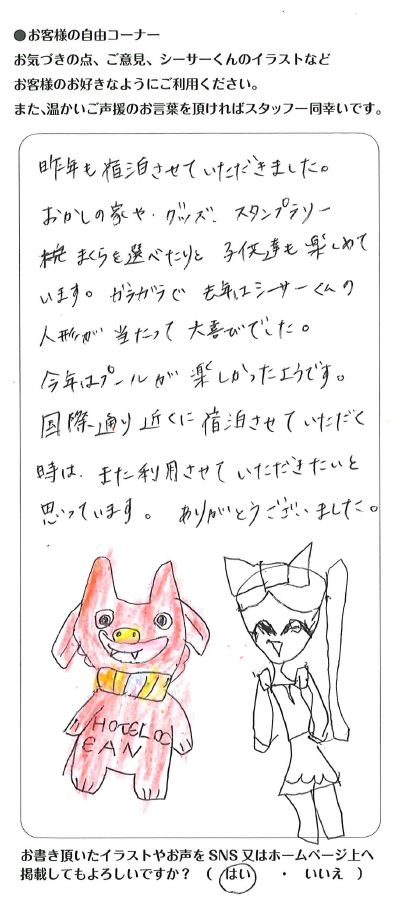 ●お客様の自由コーナー
お気づきの点、ご意見、シーサーくんのイラストなど
お客様のお好きなようにご利用ください。
また、温かいご声援のお言葉を頂ければスタッフ一同幸いです。
昨年も宿泊させていただきました。
おかしの家や、グッズ、スタンプラリー
枕まくらを選べたりと 子供達も楽しめて
います。ガラガラで 去年はシーサーくんの
人形が 当たって 大喜びでした。
今年はプールが 楽しかったようです。
国際通り近くに 宿泊させていただく
時は、また利用させていただきたいと
思っています。 ありがとうございました。
HOTELOC
EAN
お書き頂いたイラストやお声を SNS 又はホームページ上へ
掲載してもよろしいですか？ （ はい ・ いいえ ）